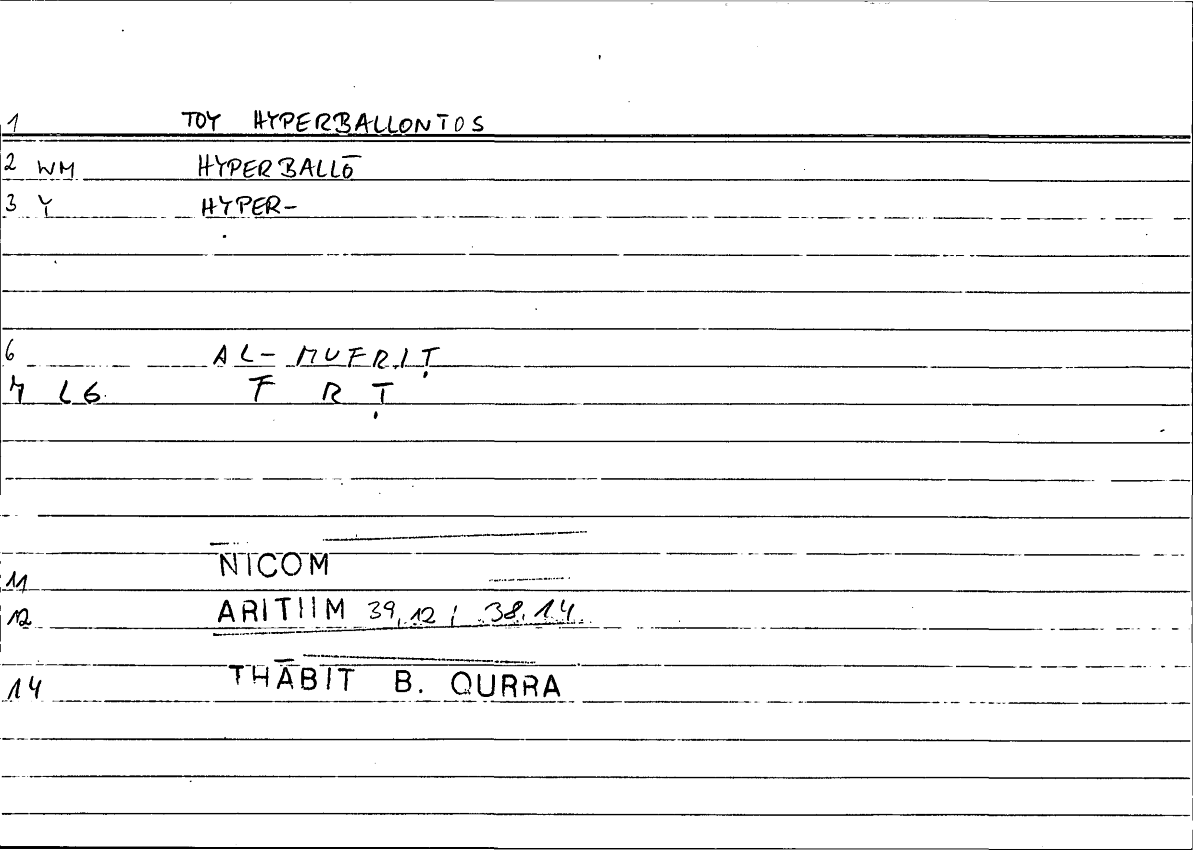 1 TOY HYPERBALLONTOS
2 WM HYPERBALLŌ
3 Y HYPER-
6 AL- MUFRIṬ
7 L6 F R Ṭ
NICOM
11
12 ARITIIM 39,12; 38,14
14 THĀBIT B. QURRA